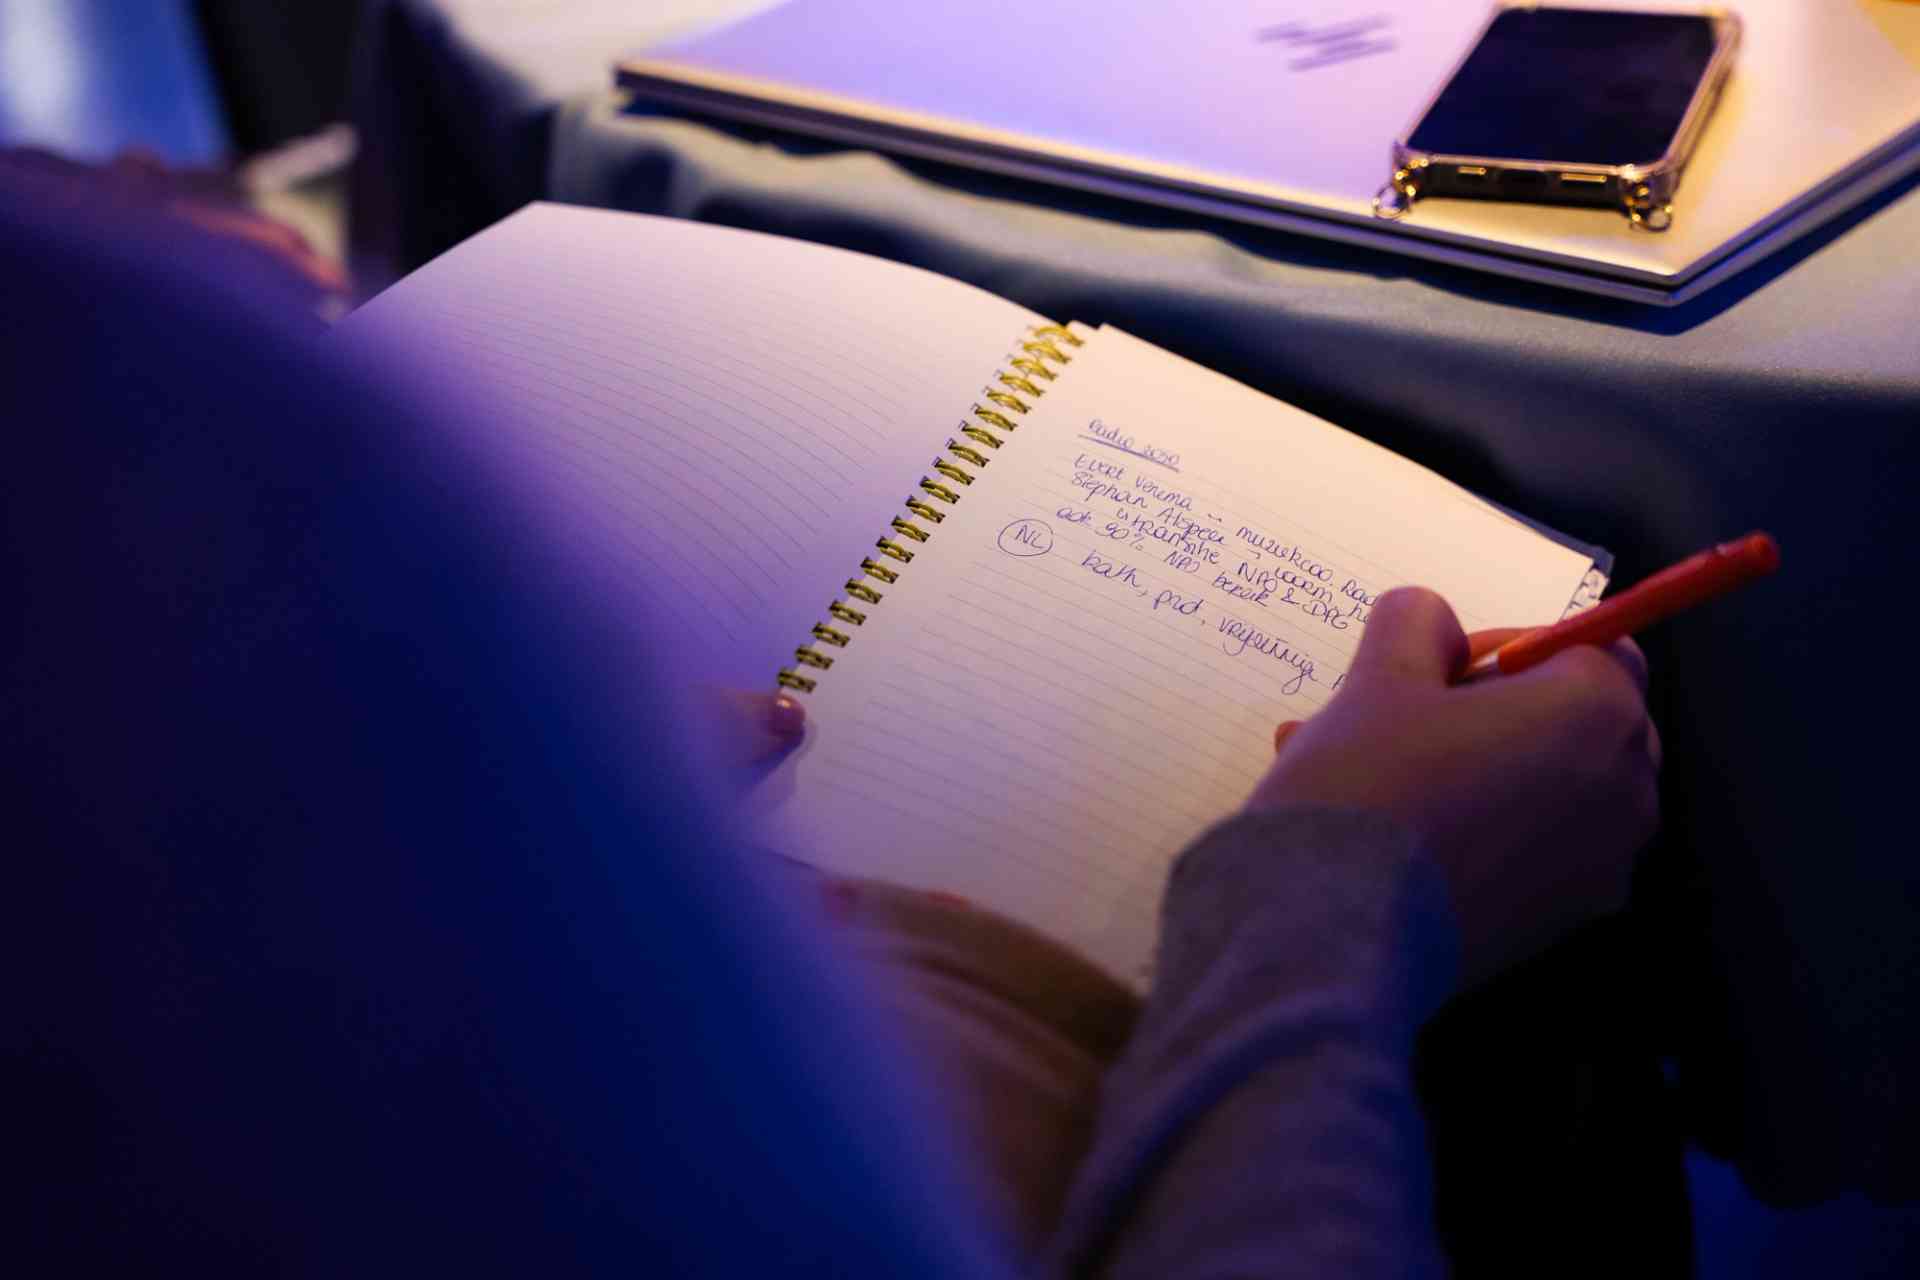 Radio 2030
Evert Venema → muziekcoo. Rad
Stephan Alspeer → voorm he
uitzendshe NPO & DPG
ook 90% NPO bereik
NL kath, prot, vrijzinnig